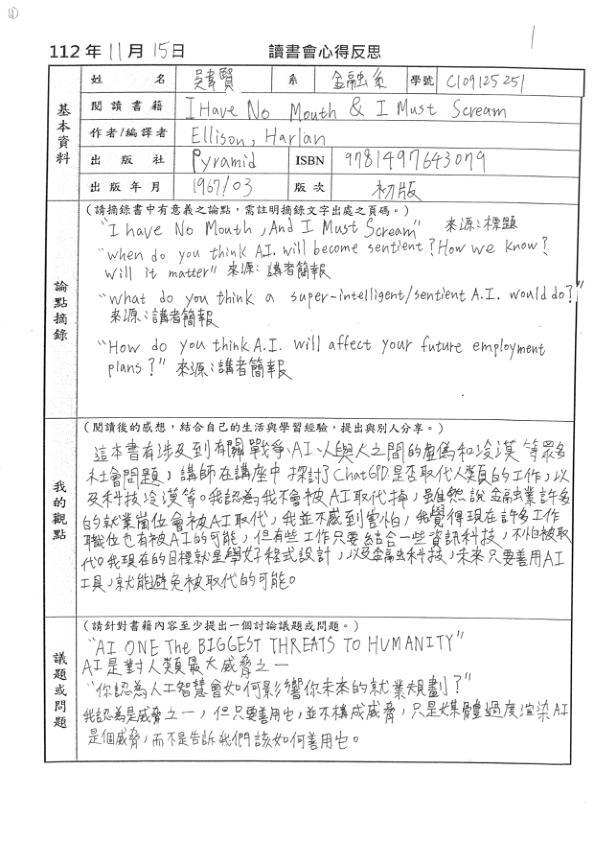 ①
1
112 年 11 月 15 日 讀書會心得反思
基本資料
姓名 吳韋賢 系 金融系 學號 C109125251
閱讀書籍 I Have No Mouth & I Must Scream
作者/編譯者 Ellison, Harlan
出版社 Pyramid ISBN 9781497643079
出版年月 1967/03 版次 初版
論點摘錄
(請摘錄書中有意義之論點,需註明摘錄文字出處之頁碼。)
"I have No Mouth, And I Must Scream" 來源:標題
"when do you think A.I. will become sentient? How we know?
Will it matter" 來源:講者簡報
"What do you think a super-intelligent/sentient A.I. would do?"
來源:講者簡報
"How do you think A.I. will affect your future employment
plans?" 來源:講者簡報
我的觀點
(閱讀後的感想,結合自己的生活與學習經驗,提出與別人分享。)
這本書有涉及到有關戰爭、AI、人與人之間的虛偽和冷漠等眾多
社會問題,講師在講座中探討了ChatGPD是否取代人類的工作,以
及科技冷漠等。我認為我不會被AI取代掉,雖然說金融業許多
的就業崗位會被AI取代,我並不感到害怕,我覺得現在許多工作
職位也有被AI的可能,但有些工作只要結合一些資訊科技,不怕被取
代。我現在的目標就是學好程式設計,以及金融科技,未來只要善用AI
工具,就能避免被取代的可能。
議題或問題
(請針對書籍內容至少提出一個討論議題或問題。)
"AI ONE The BIGGEST THREATS TO HUMANITY"
AI是對人類最大威脅之一
"你認為人工智慧會如何影響你未來的就業規劃?"
我認為是威脅之一,但只要善用它,並不構成威脅,只是媒體過度渲染AI
是個威脅,而不是告訴我們該如何善用它。